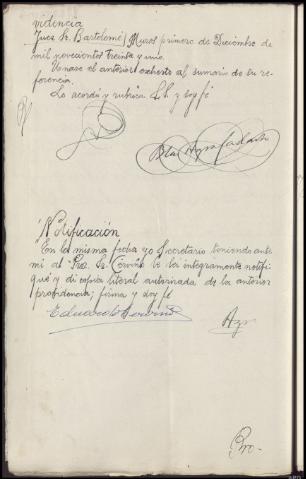 videncia
Juez Sr. Bartolomé) Muros primero de Diciembre de
mil novecientos treinta y uno.
Unase el anterior exhorto al sumario de su re-
ferencia.
Lo acordó y rubrica S.S. y doy fé
Notificación
En la misma fecha yo Secretario teniendo ante
mi al Proc. Sr. Cerviño le leí integramente notifi
qué y di copia literal autorizada de la anterior
providencia; firma y doy fé
Eduardo Cerviño
Pro-